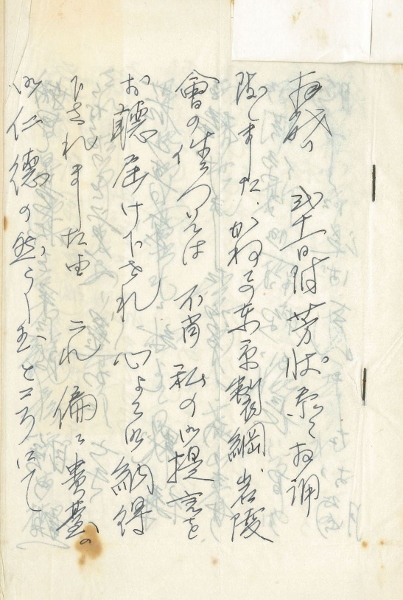 拝啓 弐十一日付芳状忝く拝誦
致しました、かねての東京製綱、岩陵
會の件については 不肖私の御提言を
お聴届け下され 心よく御納得
下されました由 これ偏に貴台の
御仁徳の然らしむるところにて